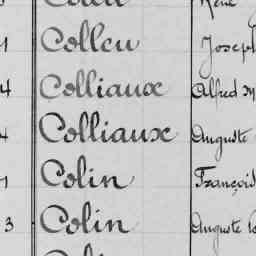 Colleu Joseph
4 Colliaux Alfred M
4 Colliaux Auguste
Colin François
3 Colin Auguste